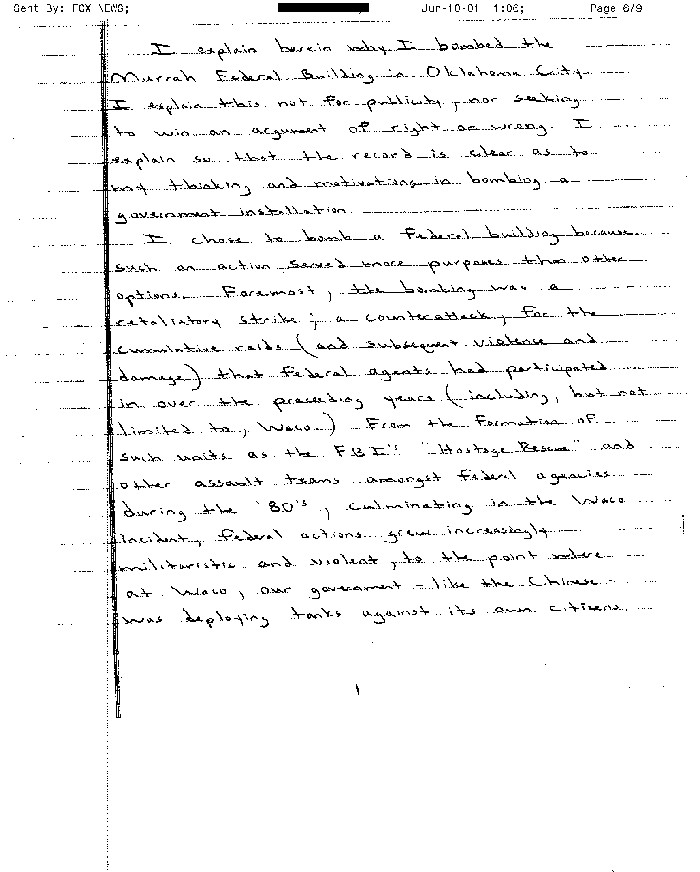 Sent By: FOX NEWS; Jun-10-01 1:06; Page 6/9
I explain herein why I bombed the
Murrah Federal Building in Oklahoma City.
I explain this not for publicity, nor seeking
to win an argument of right or wrong. I
explain so that the record is clear as to
my thinking and motivations in bombing a
government installation.
I chose to bomb a federal building because
such an action served more purposes than other
options. Foremost, the bombing was a
retaliatory strike; a counterattack, for the
cumulative raids (and subsequent violence and
damage) that federal agents had participated
in over the preceding years (including, but not
limited to, Waco.) From the formation of
such units as the FBI's "Hostage Rescue" and
other assault teams amongst federal agencies
during the '80's, culminating in the Waco
incident, federal actions grew increasingly
militaristic and violent, to the point where
at Waco, our government - like the Chinese -
was deploying tanks against its own citizens.
1